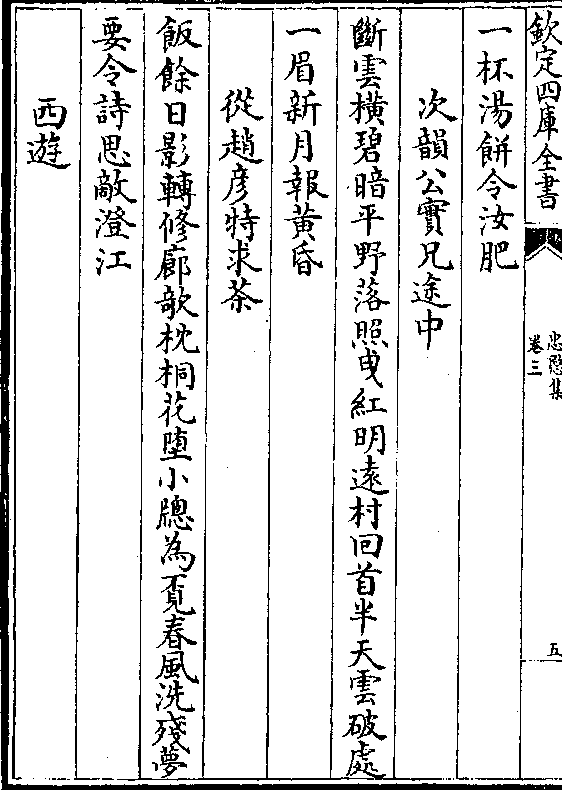 欽定四庫全書
忠愍集
卷三
五
一杯湯餅令汝肥
次韻公實兄途中
斷雲橫碧暗平野落照曵紅明遠村回首半天雲破處
一眉新月報黃昏
從趙彥特求茶
飯餘日影轉修廊欹枕桐花墮小牕為覔春風洗殘夢
要令詩思敵澄江
西遊